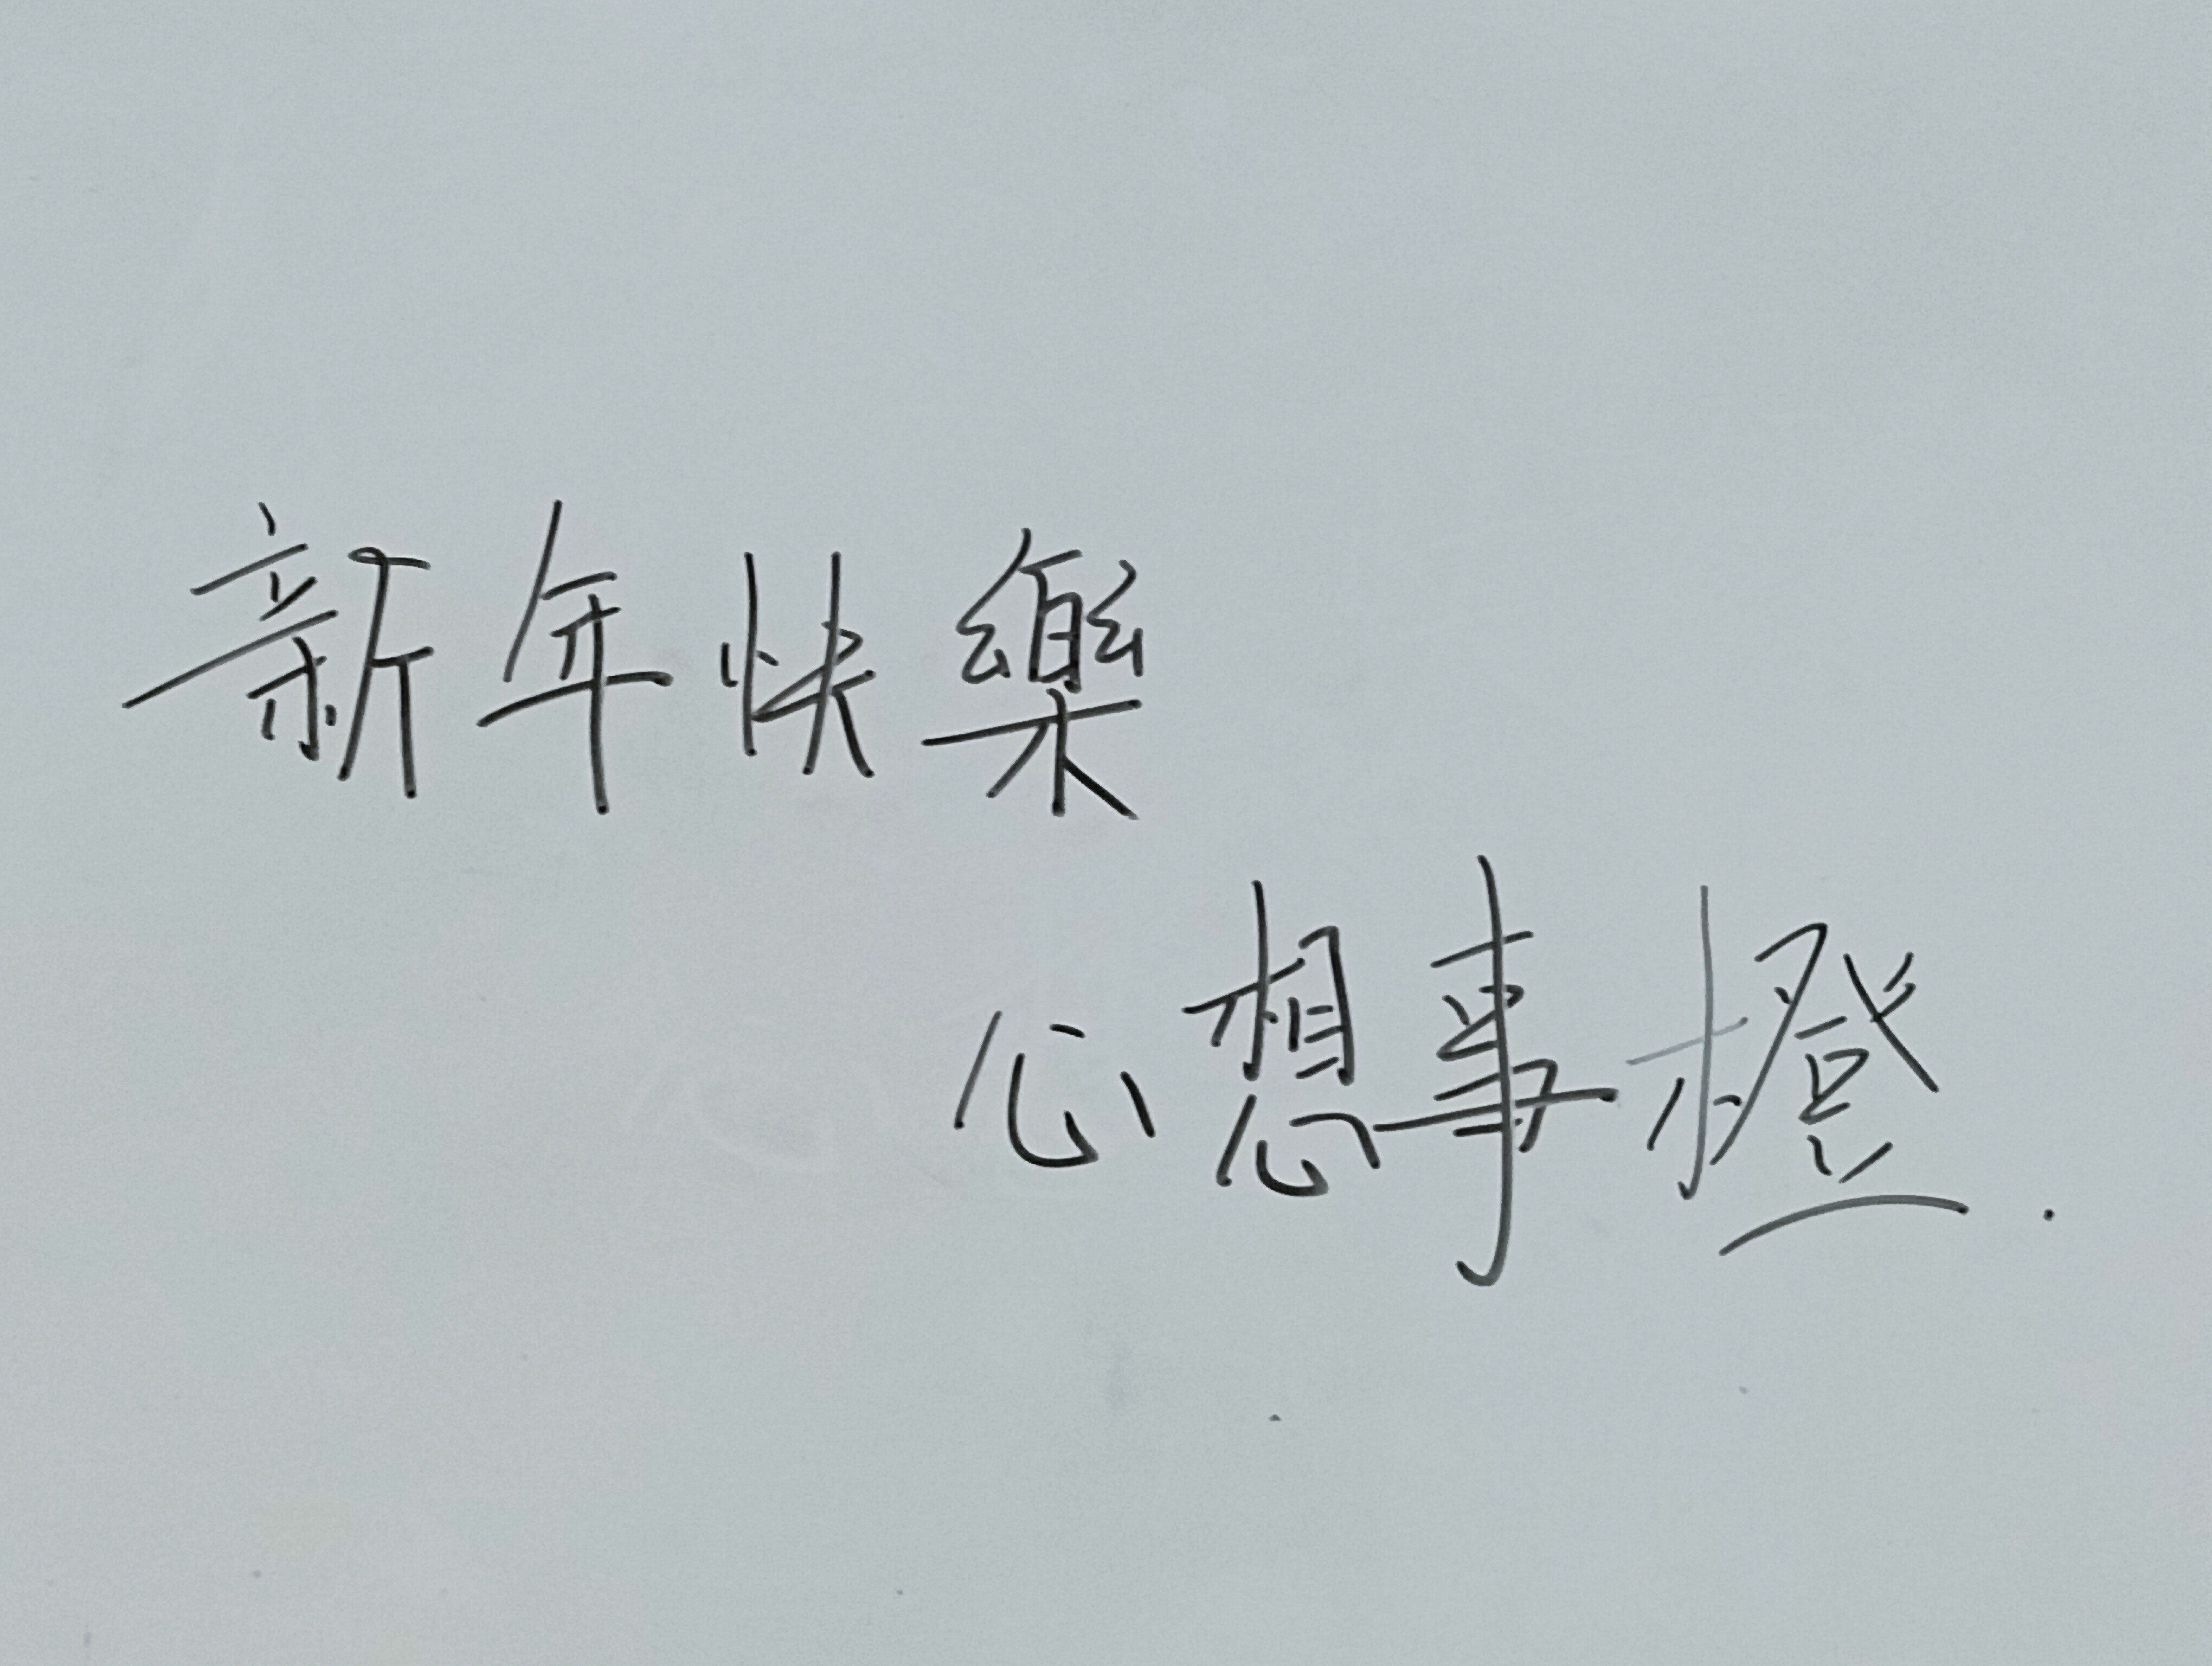 新年快樂
心想事橙.